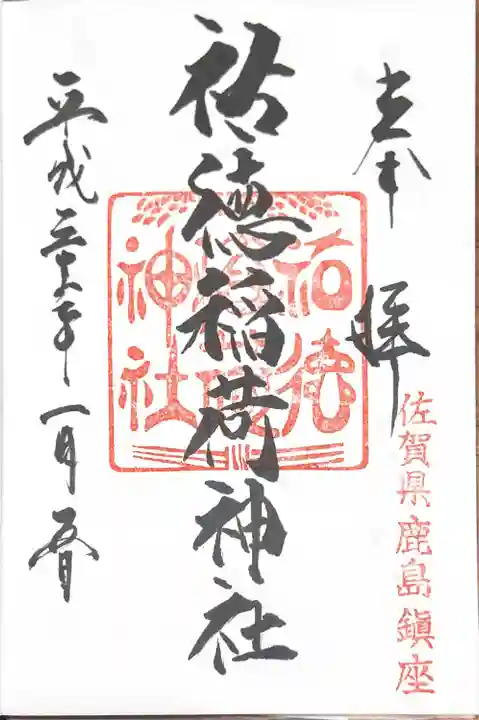 奉拝
佐賀県鹿島鎮座
祐徳稲荷神社
祐徳
稲荷
神社
平成三十年一月五日